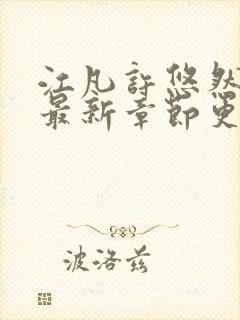 江凡许悠然
最新章节更
波洛兹